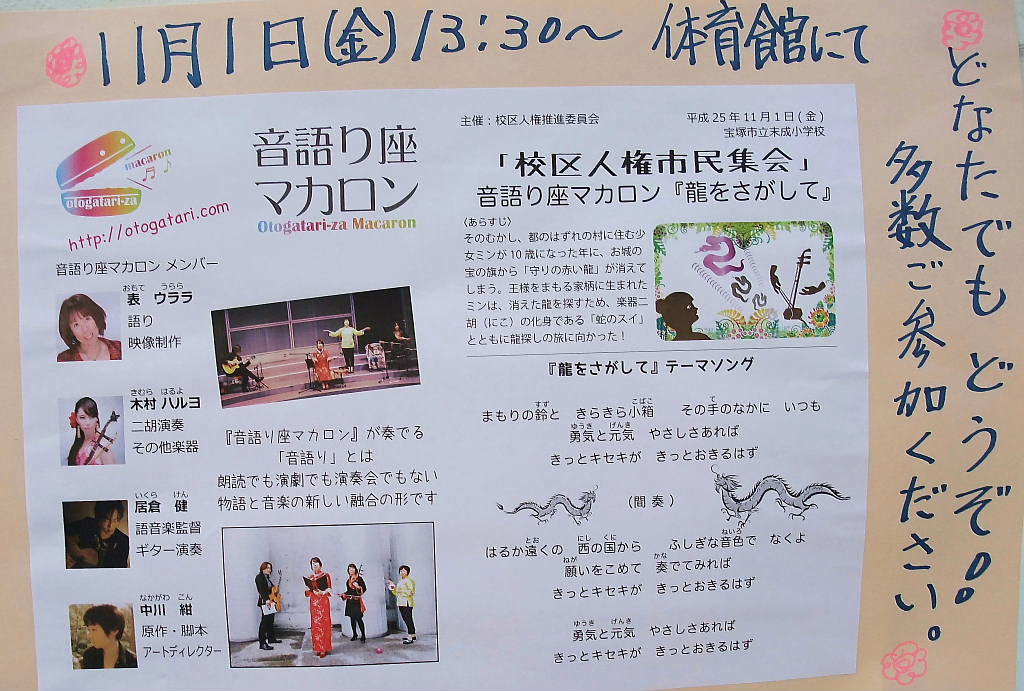 11月1日(金)13:30〜 体育館にて
どなたでもどうぞ。。
多数ご参加ください。
macaron
otogatari-za
http://otogatari.com
音語り座
マカロン
Otogatari-za Macaron
音語り座マカロン メンバー
おもて うらら
表 ウララ
語り
映像制作
きむら はるよ
木村 ハルヨ
二胡演奏
その他楽器
いくら けん
居倉 健
語音楽監督
ギター演奏
なかがわ こん
中川 紺
原作・脚本
アートディレクター
『音語り座マカロン』が奏でる
「音語り」とは
朗読でも演劇でも演奏会でもない
物語と音楽の新しい融合の形です
主催：校区人権推進委員会
平成25年11月1日(金)
宝塚市立末成小学校
「校区人権市民集会」
音語り座マカロン『龍をさがして』
〈あらすじ〉
そのむかし、都のはずれの村に住む少
女ミンが10歳になった年に、お城の
宝の旗から「守りの赤い龍」が消えて
しまう。王様をまもる家柄に生まれた
ミンは、消えた龍を探すため、楽器二
胡（にこ）の化身である「蛇のスイ」
とともに龍探しの旅に向かう！
『龍をさがして』テーマソング
すず こばこ て
まもりの鈴と きらきら小箱 その手のなかに いつも
ゆうき げんき
勇気と元気 やさしさあれば
きっとキセキが きっとおきるはず
（間奏）
とお にし くに ねいろ
はるか遠くの 西の国から ふしぎな音色で なくよ
ねが かな
願いをこめて 奏でてみれば
きっとキセキが きっとおきるはず
ゆうき げんき
勇気と元気 やさしさあれば
きっとキセキが きっとおきるはず